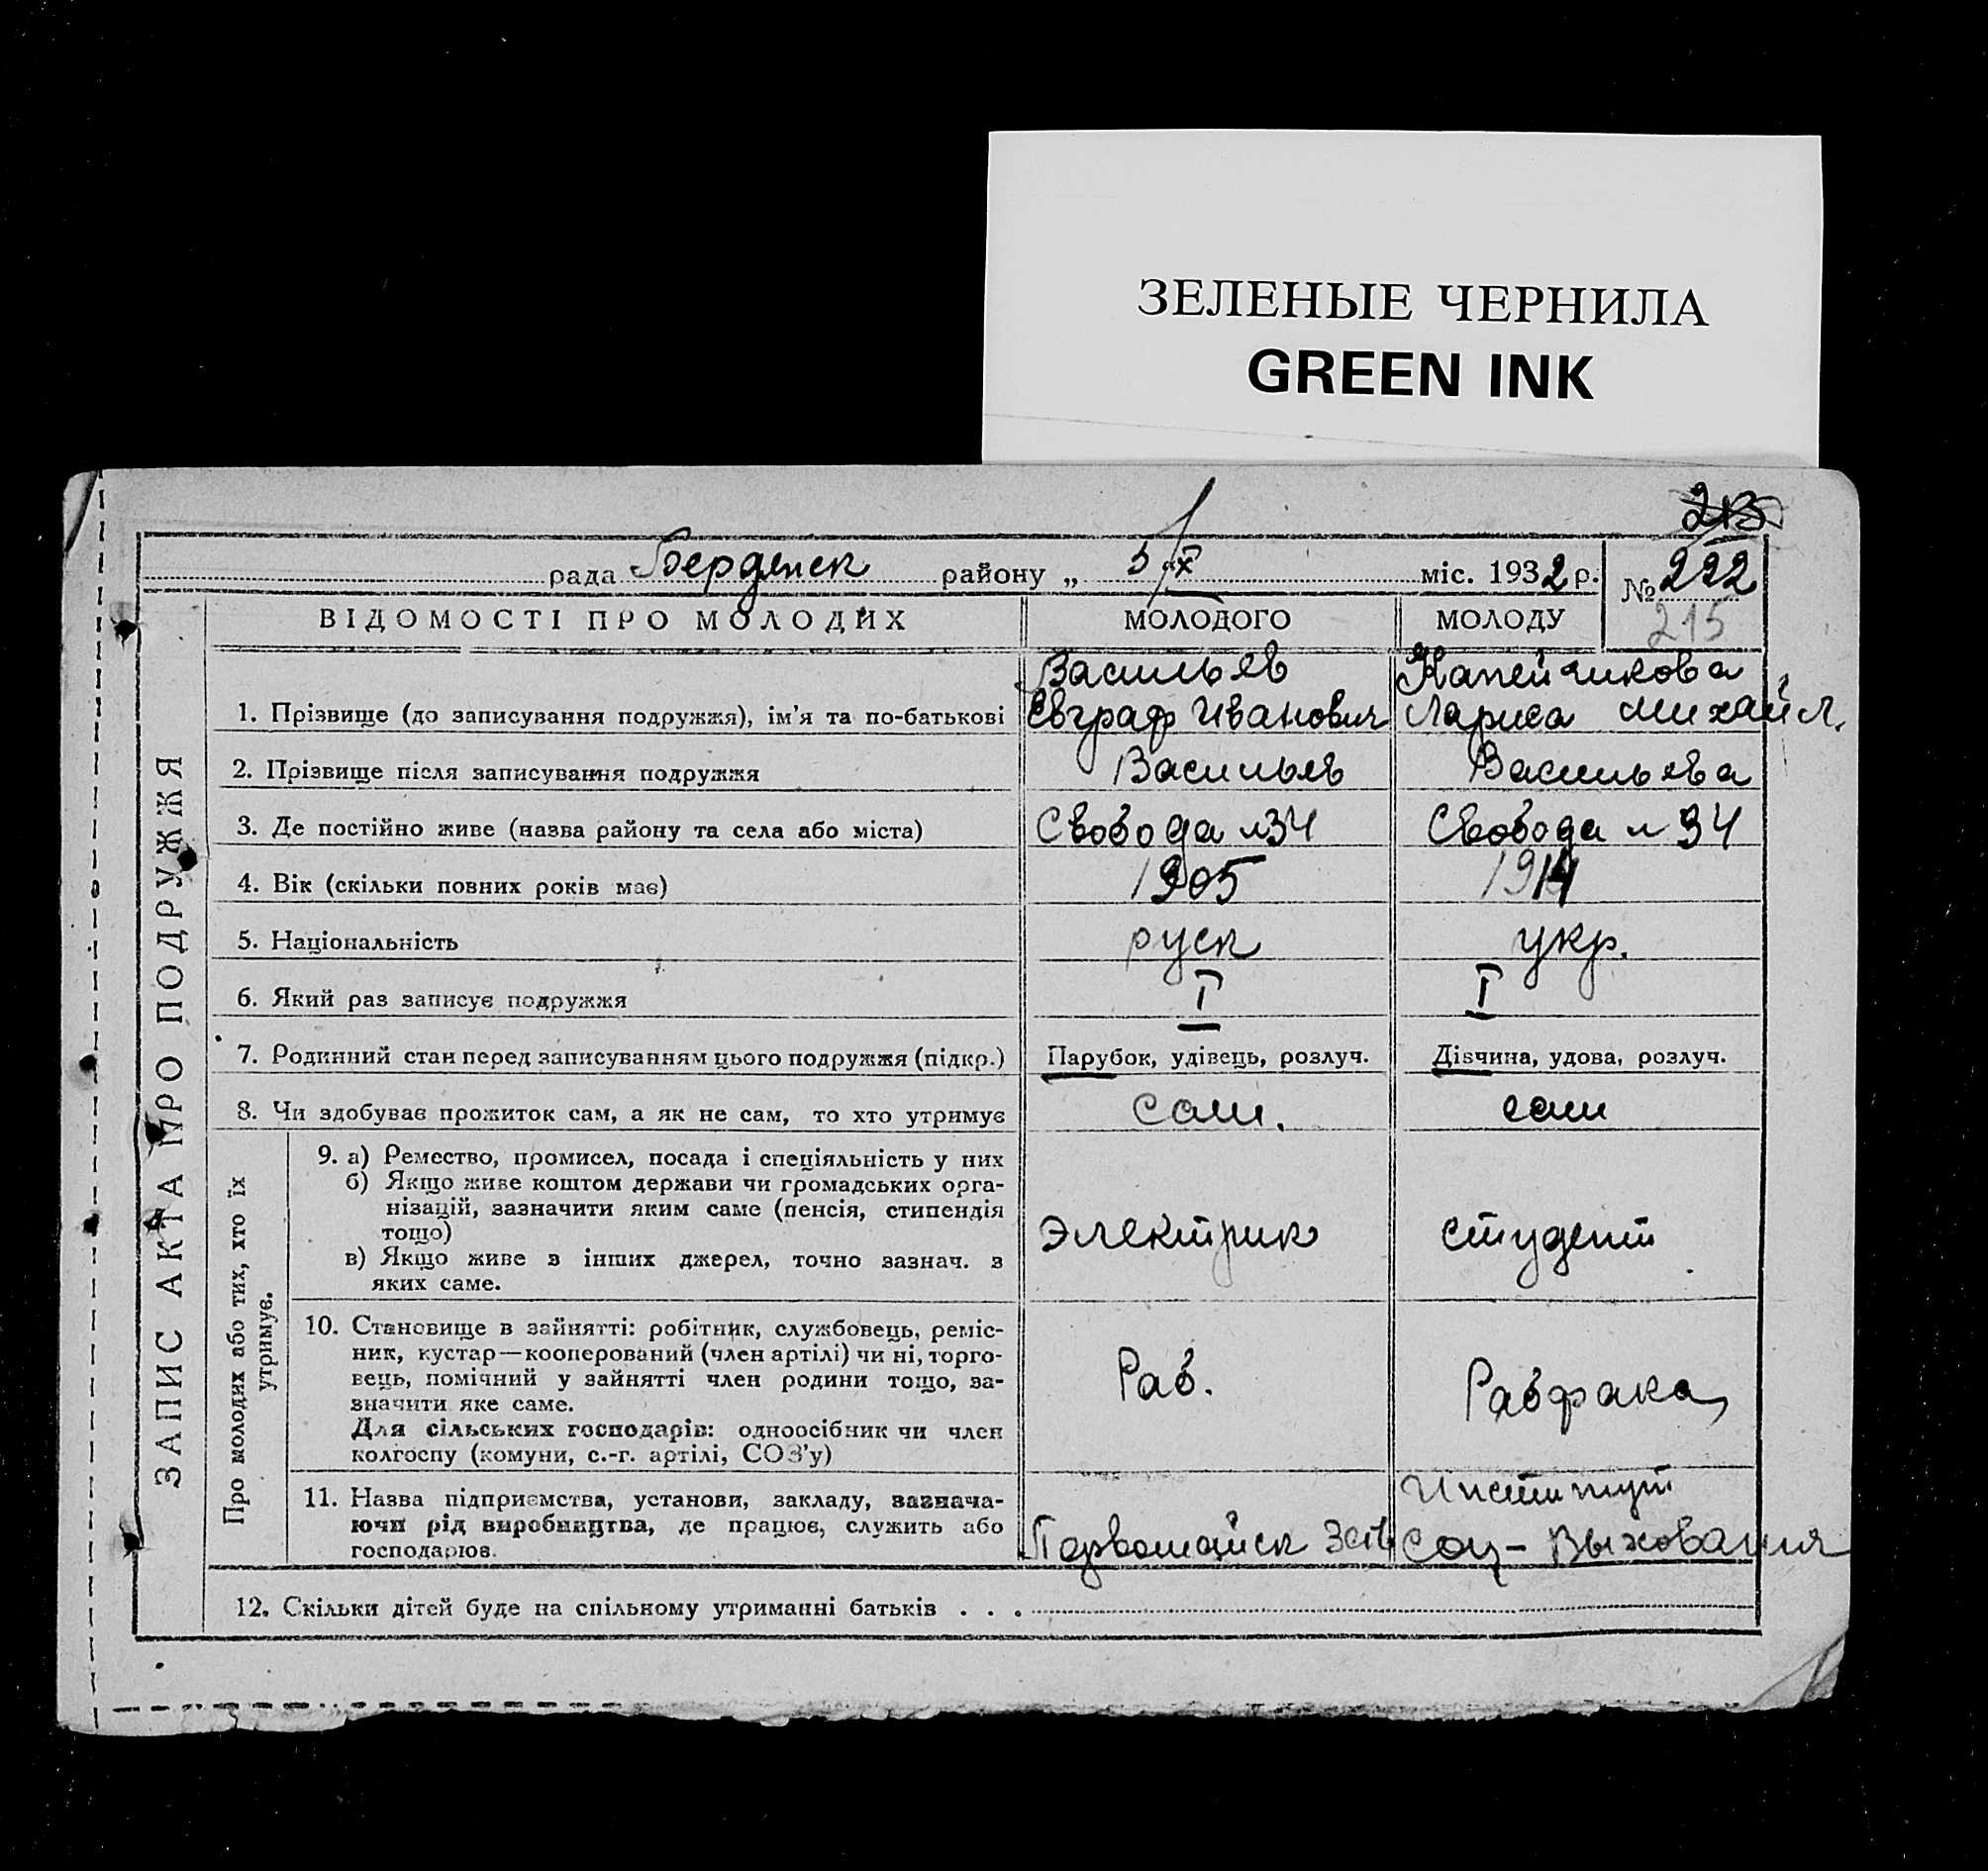 ЗЕЛЕНЫЕ ЧЕРНИЛА
GREEN INK
213
рада Бердянск району „ 5/X міс. 1932 р. № 222
215
ЗАПИС АКТА ПРО ПОДРУЖЖЯ
ВІДОМОСТІ ПРО МОЛОДИХ МОЛОДОГО МОЛОДУ
Васильев
1. Прізвище (до записування подружжя), ім'я та по-батькові Евграф Иванович Лариса Михайл.
2. Прізвище після записування подружжя Васильев Васильева
3. Де постійно живе (назва району та села або міста) Свобода №34 Свобода №34
4. Вік (скільки повних років має) 1905 1914
5. Національність руск укр.
6. Який раз записує подружжя I I
7. Родинний стан перед записуванням цього подружжя (підкр.) Парубок, удівець, розлуч. Дівчина, удова, розлуч.
8. Чи здобуває прожиток сам, а як не сам, то хто утримує сам. сам
Про молодих або тих, хто їх
утримує.
9. а) Ремество, промисел, посада і спеціяльність у них
б) Якщо живе коштом держави чи громадських орга-
нізацій, зазначити яким саме (пенсія, стипендія
тощо)
в) Якщо живе з інших джерел, точно зазнач. з
яких саме.
электрик студент
10. Становище в зайнятті: робітник, службовець, реміс-
ник, кустар—кооперований (член артілі) чи ні, торго-
вець, помічний у зайнятті член родини тощо, за-
значити яке саме.
Для сільських господарів: одноосібник чи член
колгоспу (комуни, с.-г. артілі, СОЗ'у)
Раб. Рабфака
11. Назва підприємства, установи, закладу, зазнача-
ючи рід виробництва, де працює, служить або
господарює.
Институт
Первомайск Соц-Выхования
12. Скільки дітей буде на спільному утриманні батьків . . .